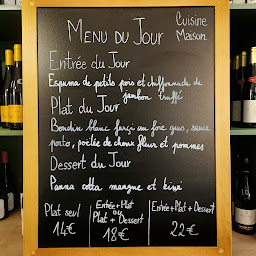 Menu du Jour
Cuisine
Maison
Entrée du Jour
Espuma de petits pois et chiffonnade de
jambon truffé
Plat du Jour
Boudin blanc farçi au foie gras, sauce
porto, poêlée de choux fleur et pommes
Dessert du Jour
Panna cotta mangue et kiwi
Plat seul
14€
Entrée + Plat
ou
Plat + Dessert
18€
Entrée + Plat + Dessert
22€